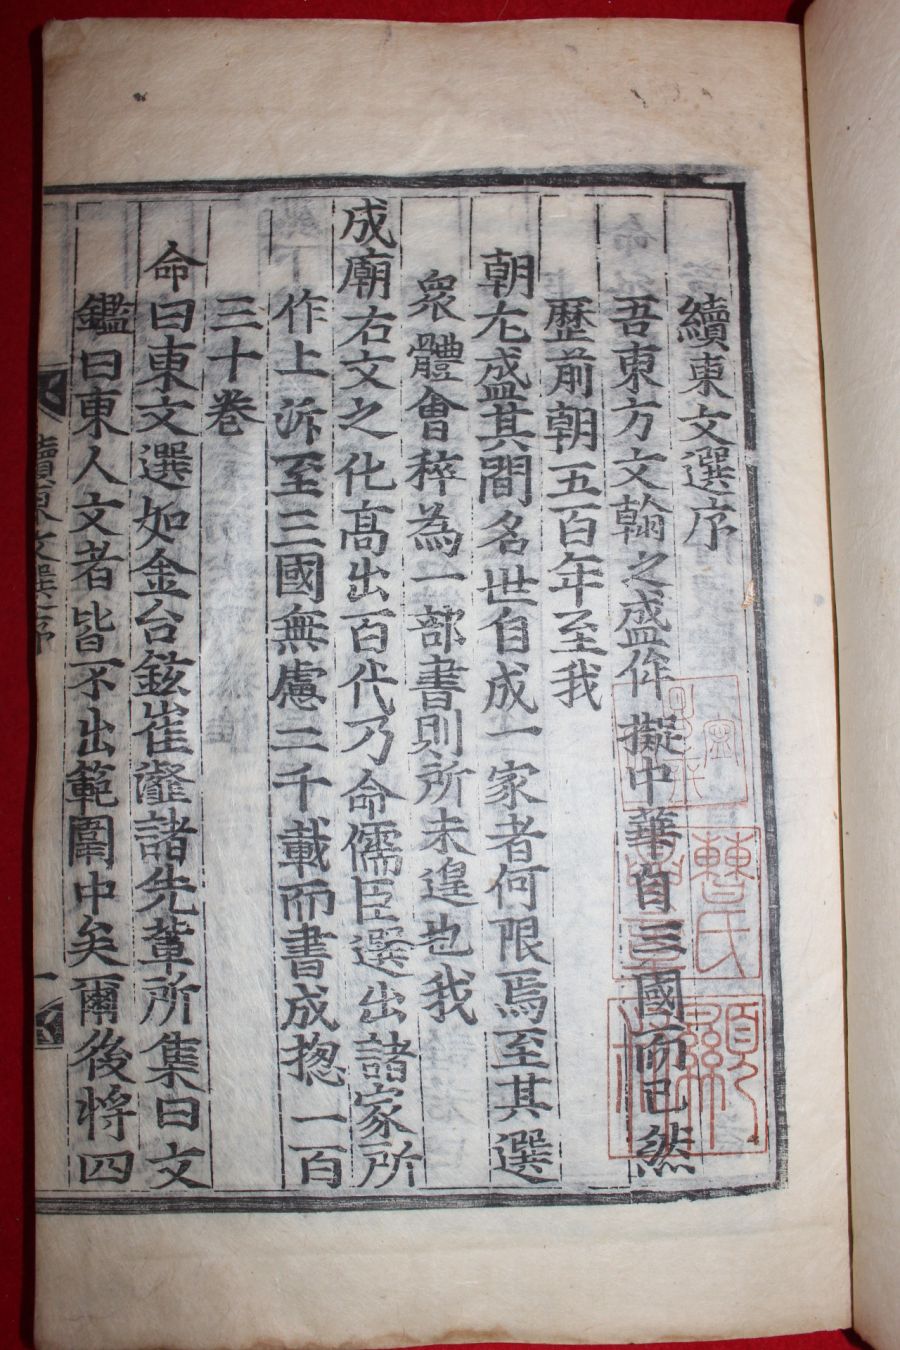 續東文選序
吾東方文翰之盛侔擬中華自三國而已然
歷前朝五百年至我
朝尤盛其間名世自成一家者何限焉至其選
衆體會稡為一部書則所未遑也我
成廟右文之化高出百代乃命儒臣選出諸家所
作上泝至三國無慮二千載而書成揔一百
三十卷
命曰東文選如金台鉉崔瀣諸先軰所集曰文
鑑曰東人文者皆不出範圍中矣爾後將四
續東文選序
一